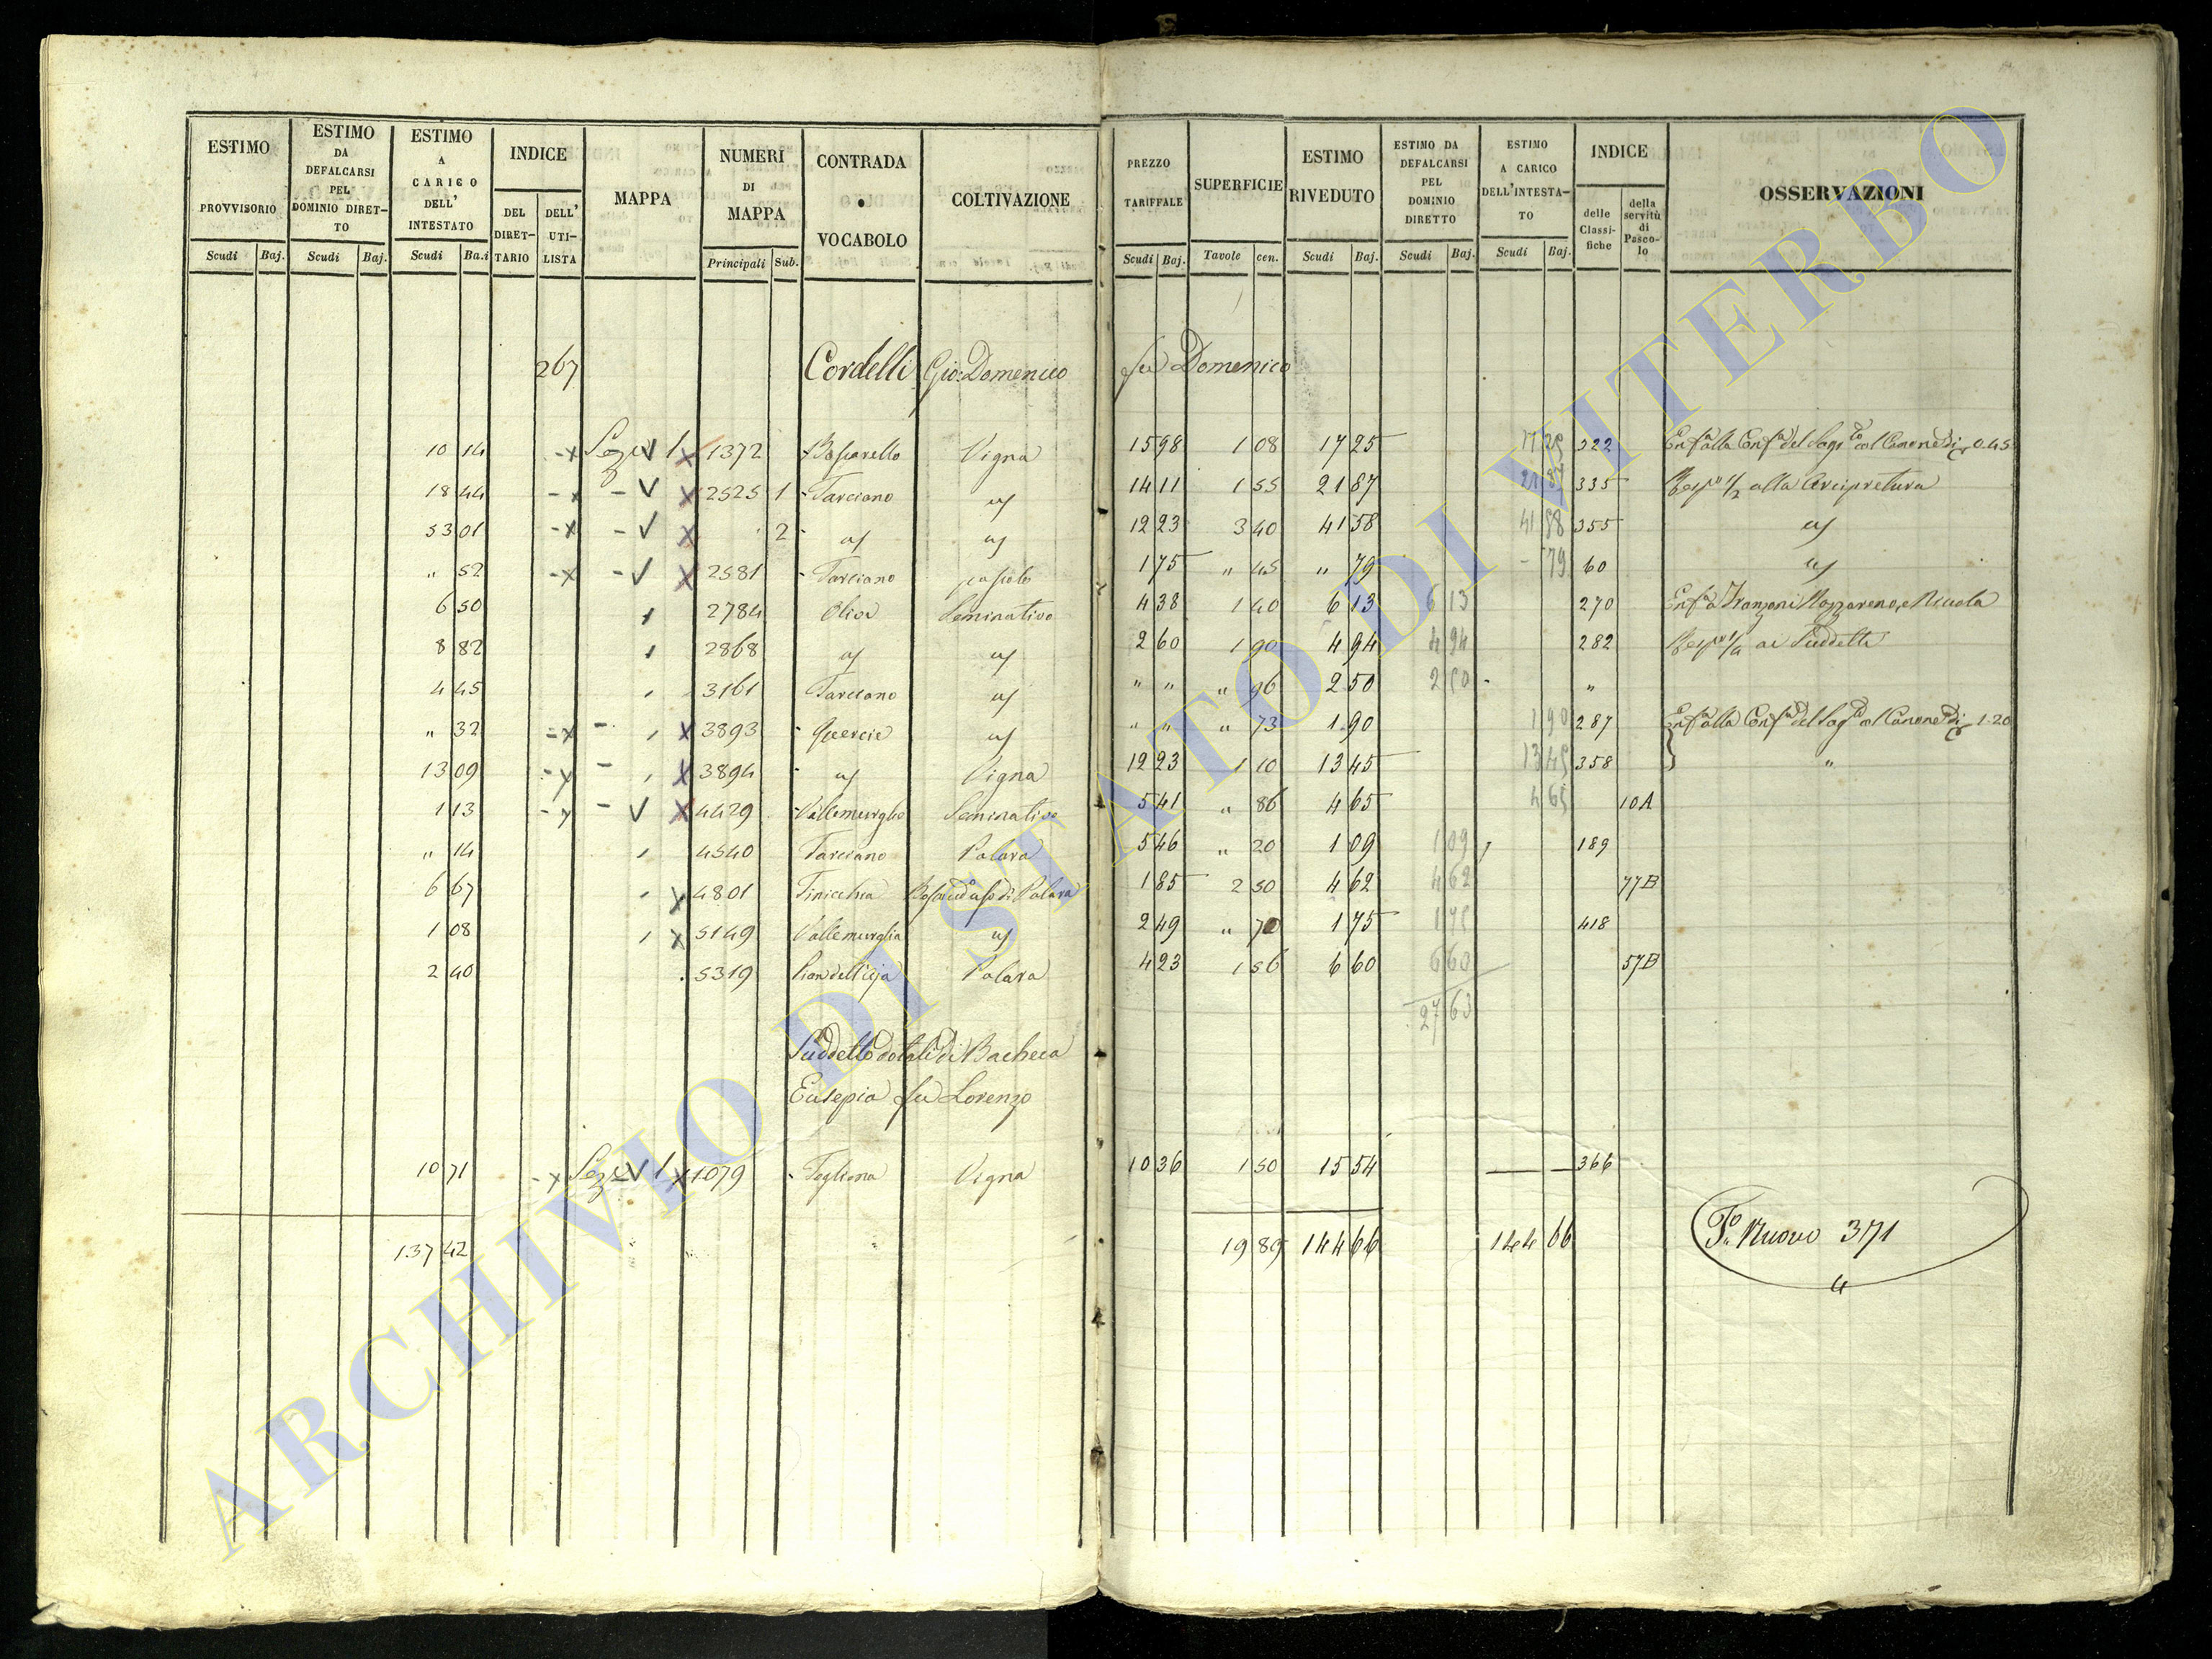 ESTIMO PROVVISORIO Scudi Baj.
ESTIMO DA DEFALCARSI PEL DOMINIO DIRET-TO Scudi Baj.
ESTIMO A CARICO DELL' INTESTATO Scudi Ba.i
INDICE DEL DIRET-TARIO DELL' UTI-LISTA
MAPPA
NUMERI DI MAPPA Principali Sub.
CONTRADA • VOCABOLO
COLTIVAZIONE
PREZZO TARIFFALE Scudi Baj.
SUPERFICIE Tavole cen.
ESTIMO RIVEDUTO Scudi Baj.
ESTIMO DA DEFALCARSI PEL DOMINIO DIRETTO Scudi Baj.
ESTIMO A CARICO DELL'INTESTA-TO Scudi Baj.
INDICE delle Classi-fiche della servitù di Pasco-lo
OSSERVAZIONI
267 Cordelli Gio: Domenico fu Domenico
10 14 -x Sez. V 1 x 1372 Vigna 15 98 1 08 17 25 17 25 322 0.45
18 44 -x - V x 2525 1 Tarciano us 14 11 1 55 21 87 21 87 335 Resp. 1/2 alla Arcipretura
53 01 -x - V x 2 us us 12 23 3 40 41 58 41 58 355 us
" 52 -x - V x 2581 Tarciano pascolo 1 75 " 45 " 79 - 79 60 us
6 50 2784 Oliva Seminativo 4 38 1 40 6 13 6 13 270
8 82 2868 us us 2 60 1 90 4 94 4 94 282 ai Suddetti
4 45 3161 Tarciano us " " " 96 2 50 2 50 "
" 32 -x - x 3893 Quercie us " " " 73 1 90 1 90 287 1.20
13 09 -x - x 3894 us Vigna 12 23 1 10 13 45 13 45 358 "
1 13 -x - V x 4429 Seminativo 5 41 " 86 4 65 4 65 10A
" 14 4540 Tarciano Palara 5 46 " 20 1 09 1 09 189
6 67 x 4801 Finicchia 1 85 2 50 4 62 4 62 77B
1 08 x 5149 Vallemuraglia us 2 49 " 70 1 75 1 75 418
2 40 5319 Palara 4 23 1 56 6 60 6 60 57B
27 63
Suddetto dotali di Bacheca
Eusepia fu Lorenzo
10 71 -x Sez. V 1 x 1079 Vigna 10 36 1 50 15 54 366
137 42 19 89 144 66 144 66
Po. Nuovo 371
ARCHIVIO DI STATO DI VITERBO